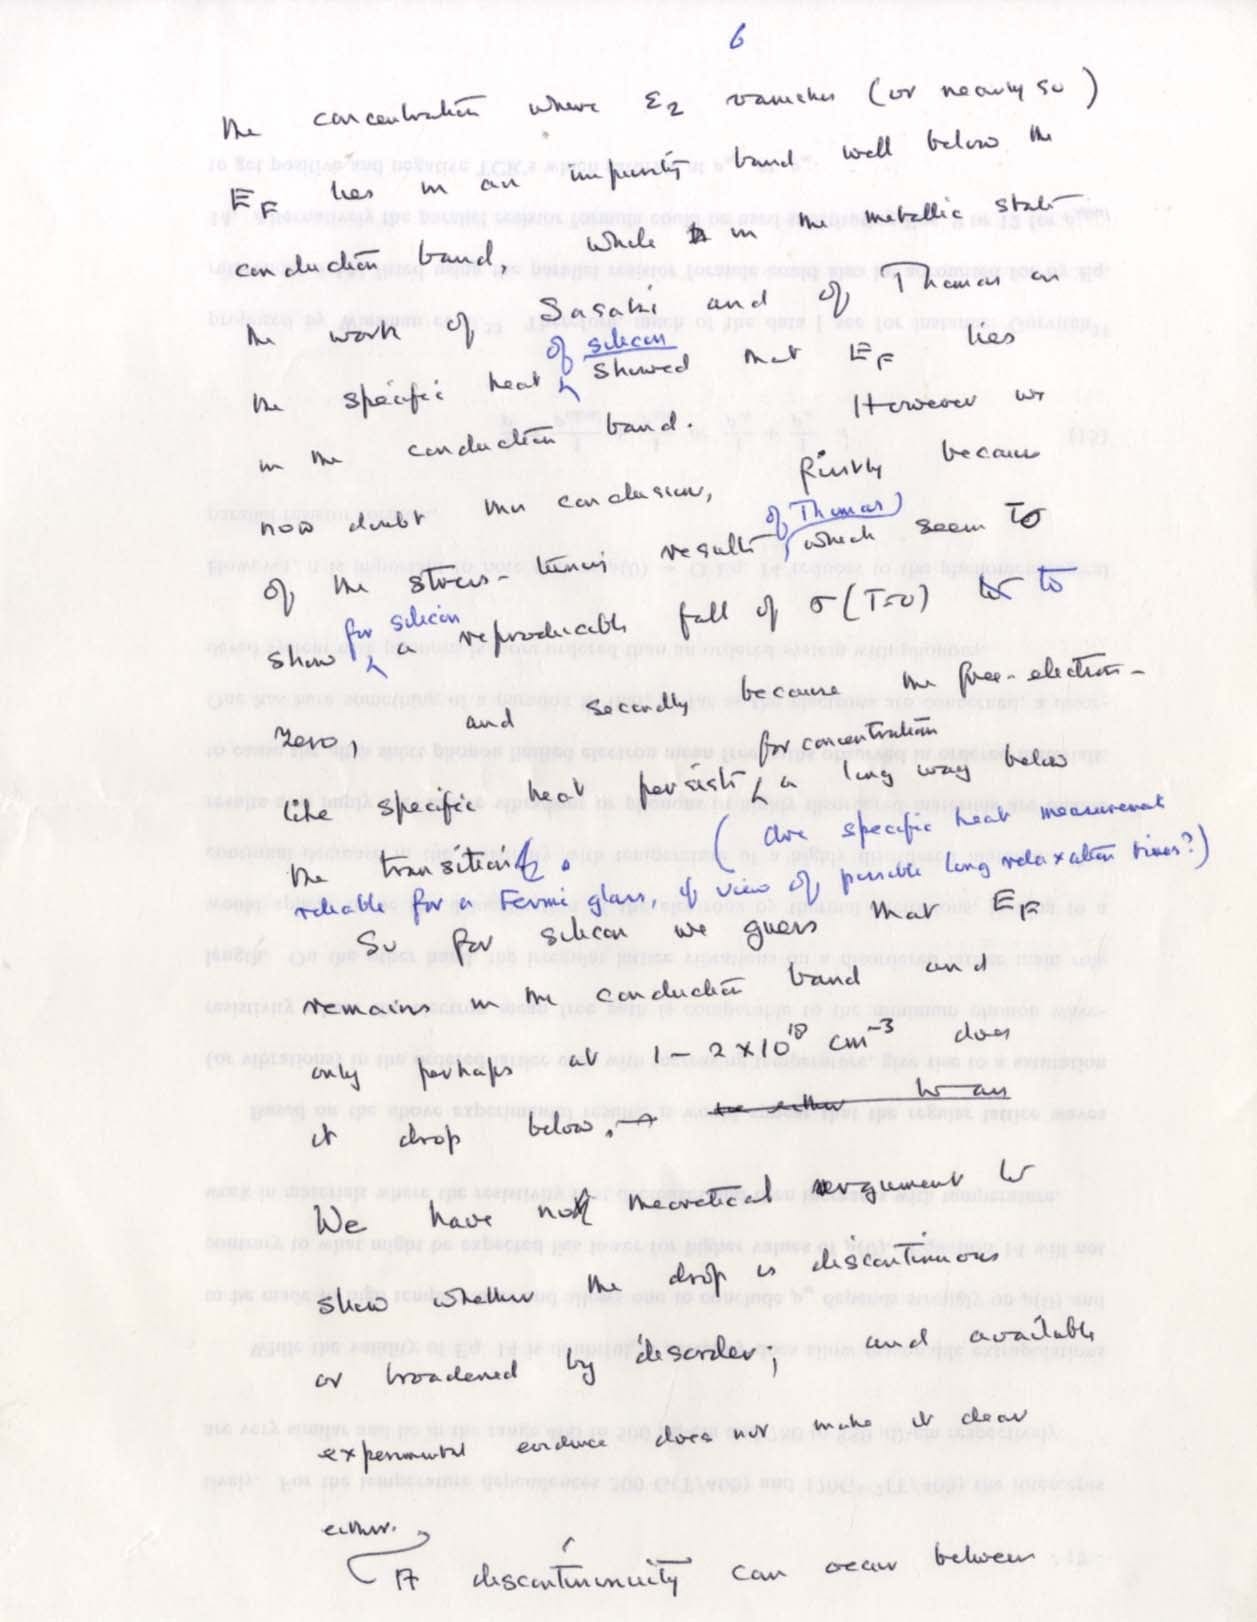 6
the concentration where ε2 vanishes (or nearly so)
EF lies in an impurity band well below the
conduction band, while in the metallic state
the work of Sasaki and of Thomas on
of silicon
the specific heat showed that EF lies
in the conduction band. However we
now doubt this conclusion, firstly because
of Thomas)
of the stress-tuning results which seem to
for silicon
show a reproducible fall of σ(T=0) to
zero, and secondly because the free-electron-
for concentration
like specific heat persists a long way below
the transition. (Are specific heat measurement
reliable for a Fermi glass, if view of possible long relaxation times?)
So for silicon we guess that EF
remains in the conduction band and
only perhaps at 1-2×10^18 cm^-3 does
it drop below.
We have no theoretical argument to
show whether the drop is discontinuous
or broadened by disorder; and available
experimental evidence does not make it clear
either.
A discontinuity can occur between